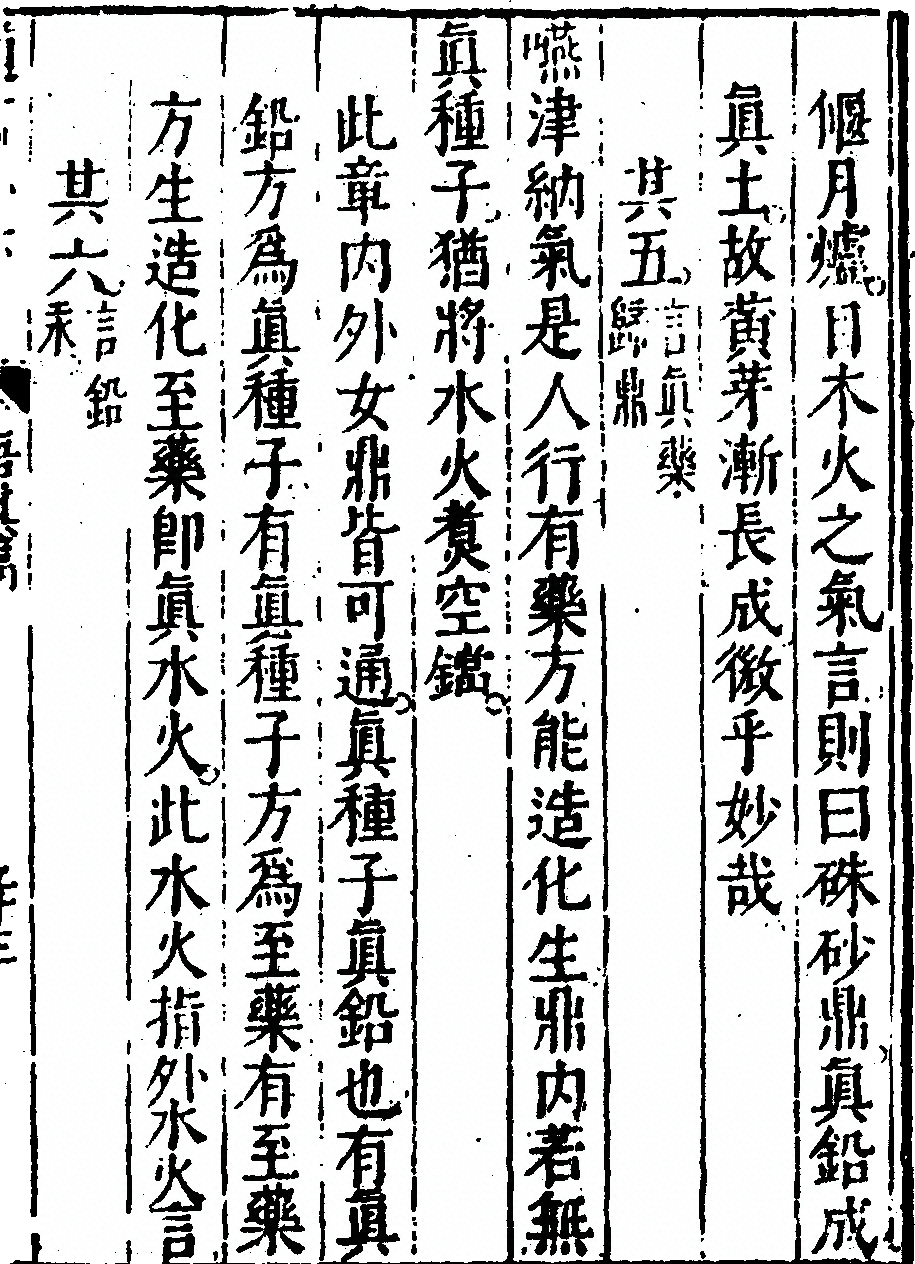 偃月爐日木火之氣言則曰硃砂鼎眞鉛成
眞土故黃芽漸長成微乎妙哉
其五言眞藥歸鼎
嚥津納氣是人行有藥方能造化生鼎內若無
眞種子猶將水火煑空鐺
此章內外女鼎皆可通眞種子眞鉛也有眞
鉛方爲眞種子有眞種子方爲至藥有至藥
方生造化至藥卽眞水火此水火指外水火言
其六言鉛汞